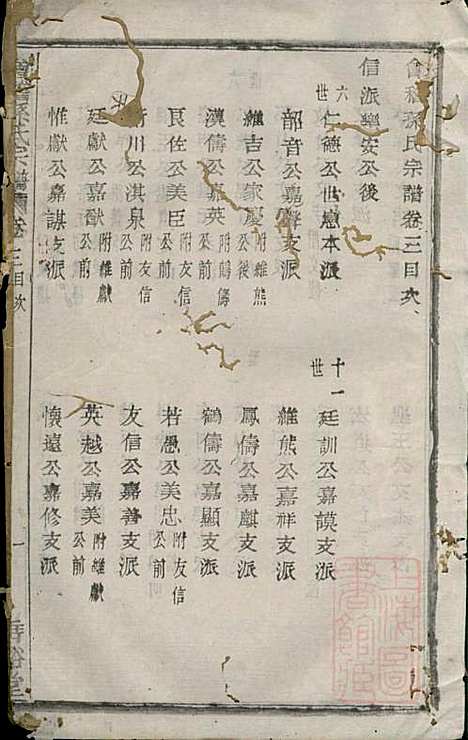 會稽孫氏宗譜卷三目次
信派樂安公後
六世 仁德公世憲本派
十一世 廷訓公嘉謨支派
韶音公嘉聲支派
維熊公嘉祥支派
維吉公家慶 附維熊公後
鳳儔公嘉麒支派
漢儔公嘉英 附鶴儔公前
鶴儔公嘉顯支派
艮佐公美臣 附友信公前
若愚公美忠 附友信公前
川公淇泉 附友信公前
友信公嘉善支派
廷獻公嘉猷 附維獻公前
英越公嘉美 附維獻公前
惟獻公嘉謀支派
懷遠公嘉修支派
孫氏宗譜 卷三目次
一
裕堂
上海圖書館藏